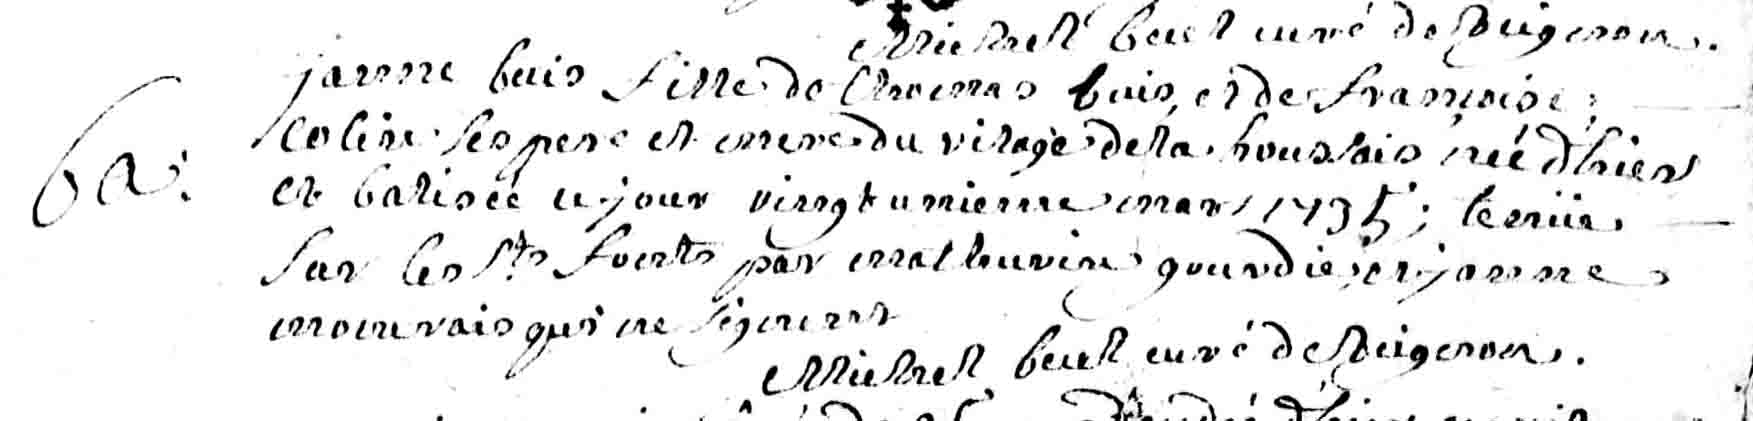 Michel beul curé de Guigenou.
janne buis fille de thomas buis, et de francoise;
Coline ses pere et mere du vilage de la houssais née d'hier
ba: et batisée ce jour vingt unieme mars 1735; tenüe
sur les sts fonts par mathurin gourdié; et janne
mouvrais qui ne signent
Michel beul curé de Guigenou.